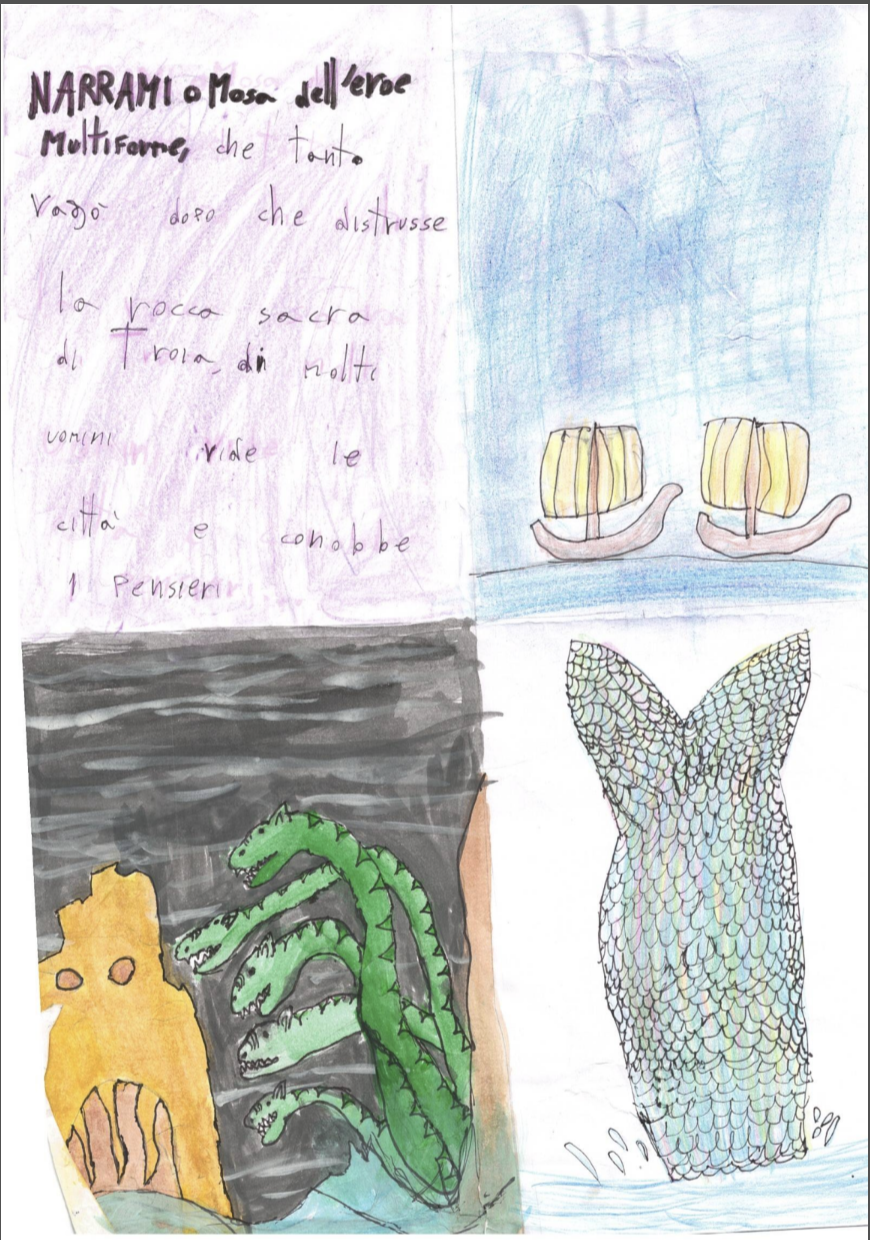 NARRAMI o Mosa dell'eroe
Multiforme, che tanto
Vagò dopo che distrusse
la rocca sacra
di Troia, di molti
uomini vide le
città e conobbe
i Pensieri